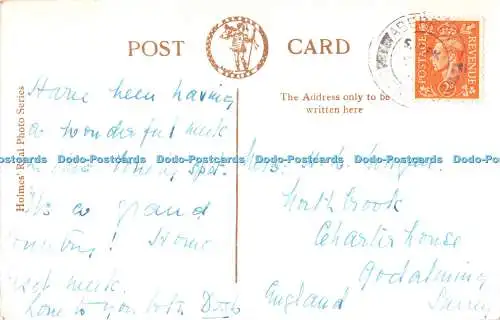 POST CARD
Holmes' Real Photo Series
The Address only to be
written here
POSTAGE REVENUE
2D
Have been having
a wonderful week
in this lovely spot.
It's a grand
country! Home
next week.
Love to you both
Mrs. H. W.
North Brook
Charterhouse
Godalming
Surrey
England
Dodo-Postcards Dodo-Postcards Dodo-Postcards Dodo-Postcards Dodo-Postcards Dodo-Postcards